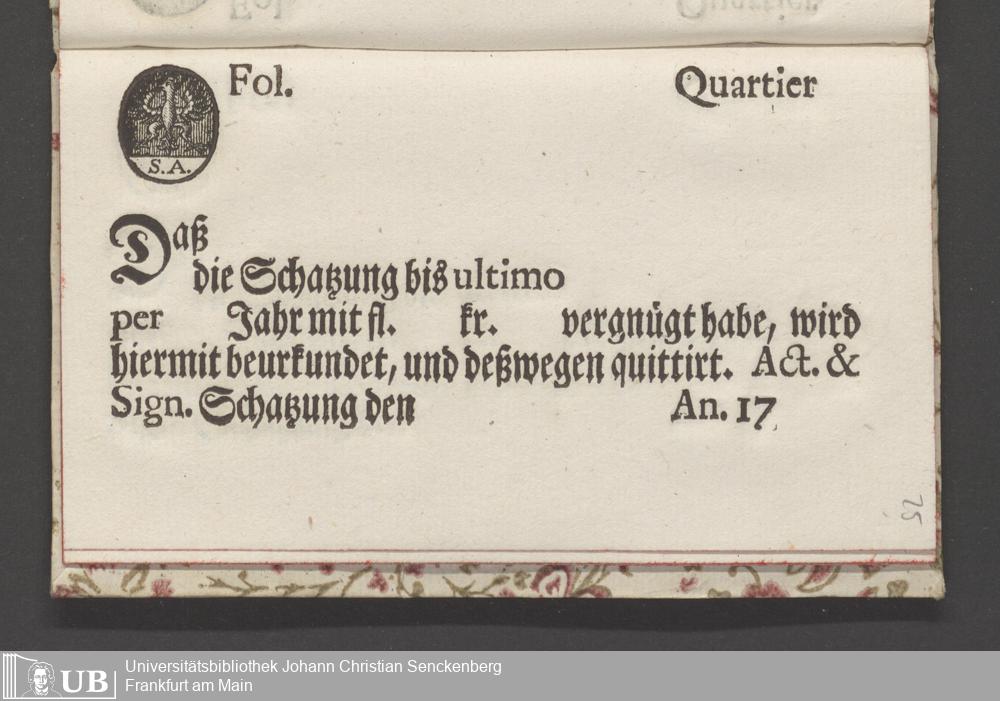 Fol. Quartier
S.A.
Daß
die Schatzung bis ultimo
per Jahr mit fl. kr. vergnügt habe, wird
hiermit beurkundet, und deßwegen quittirt. Act. &
Sign. Schatzung den An. 17
25
Universitätsbibliothek Johann Christian Senckenberg
Frankfurt am Main
UB